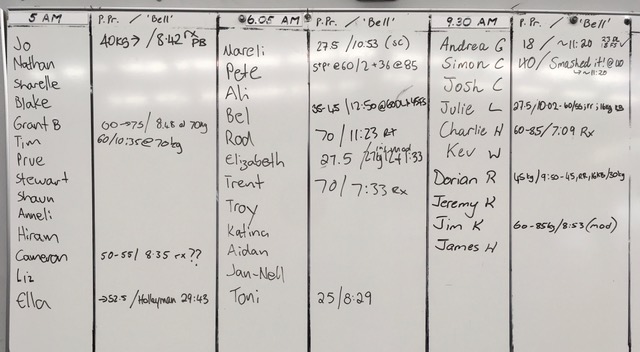 5 AM P.Pr. / 'Bell'
Jo 40kg → / 8:42 rx PB
Nathan
Sharelle
Blake
Grant B 60→75 / 8:48 @ 70kg
Tim 60/10:35@70kg
Prue
Stewart
Shaun
Anneli
Hiram
Cameron 50-55/ 8:35 rx??
Liz
Ella →52.5 / Holleyman 29:43
6.05 AM P.Pr. / 'Bell'
Nareli 27.5 /10:53 (sc)
Pete 5*P* @60/2+36@85
Ali
Bel 35-45 /12:50@60DL
Rod 70 / 11:23 Rx
Elizabeth 27.5 /27kg 12+1:33
Trent 70/7:33 Rx
Troy
Katina
Aidan
Jan-Nell
Toni 25/8:29
9.30 AM P.Pr. / 'Bell'
Andrea G 18 / ~11:20
Simon C 40/ Smashed it! @60 ~11:20
Josh C
Julie L 27.5/10:02-60/55;rr;16kg KB
Charlie H 60-85/7:09 Rx
Kev W
Dorian R 45kg/9:50-45,RR,16KB/30kg
Jeremy K
Jim K 60-85kg/8:53 (mod)
James H